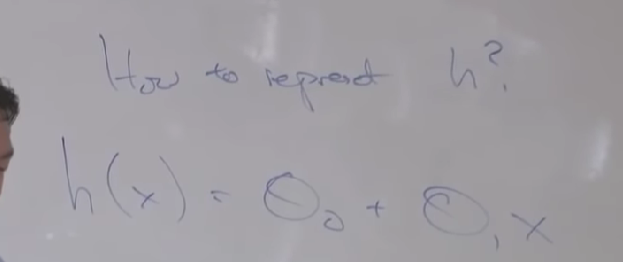 How to represent h?
h(x) = θ₀ + θ₁x